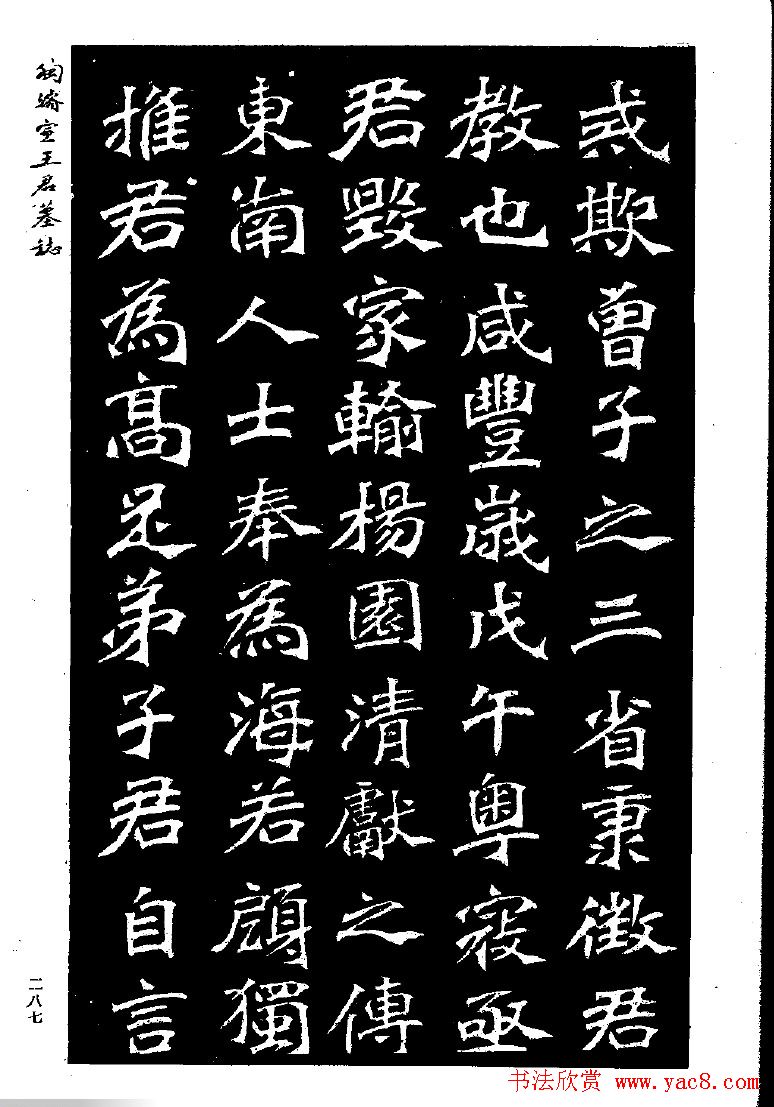 戒欺曾子之三省秉徵君
教也咸豐歲戊午粵寇亟
君毀家輸楊園清獻之傳
東南人士奉為海若顧獨
推君為高足弟子君自言
陶濬宣王君墓誌
二八七
书法欣赏 www.yac8.com